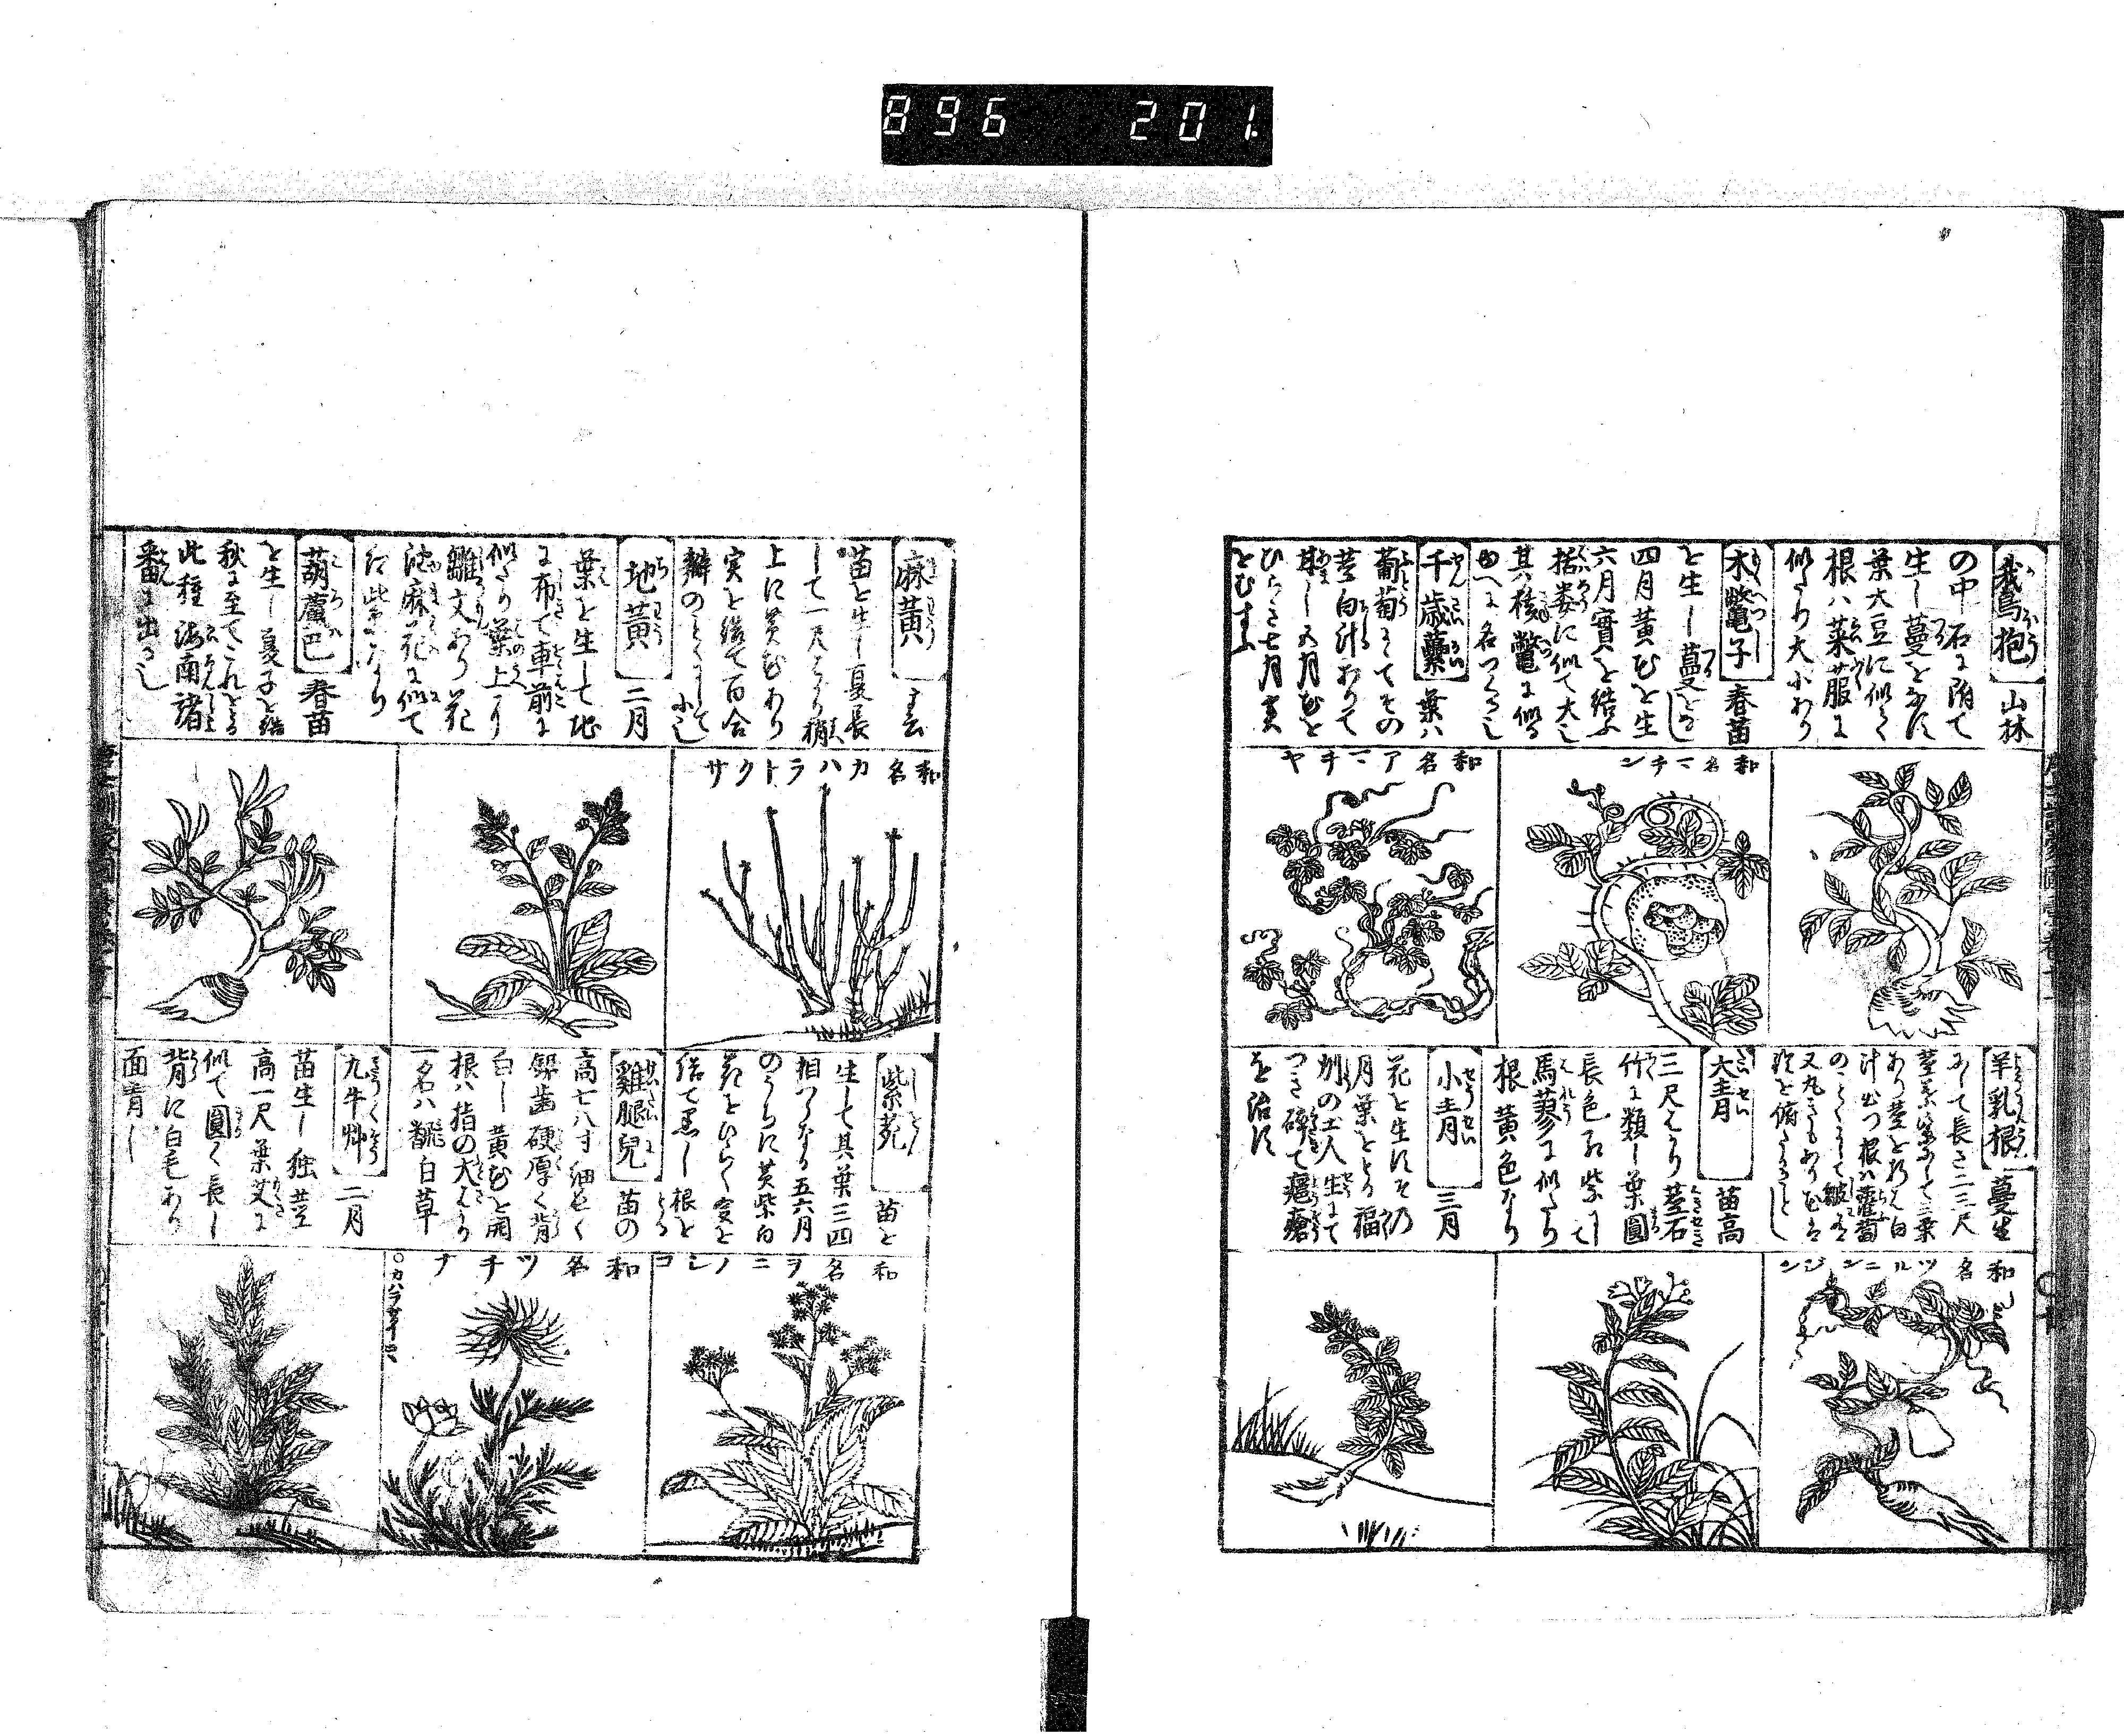 896 201
鵞抱 山林
の中石に附て
生し蔓をなす
葉大豆に似て
根ハ菜菔に
似たり大小あり
木鼈子 春苗
を生し蔓をなし
四月黄花を生
六月實を結ふ
括娄に似て大し
其核鼈に似る
ゆへに名つくるし
千歳虆 葉ハ
葡萄にてその
茎白汁ありて
甘し五月花を
ひらき七月実
をむすふ
和名マチン
和名アマチヤ
羊乳根 蔓生
にして長さ二三尺
汁出つ根ハ蘿蔔
大青 苗高
三尺はかり茎石
竹に類し葉圓
長色紅紫にして
馬蓼に似たり
根黄色なり
小青 三月
花を生すその
月葉をとる福
州の土人生にて
つき碎て癰瘡
を治す
和名ツルニンジン
麻黄 春
苗を生し夏長
して一尺はかり梢
上に黄花あり
実を結て百合
瓣のことくにして小し
地黄 二月
葉を生して地
に布て車前に
似たり葉上に
雛文あり花
油麻花に似て
紅紫色なり
葫蘆巴 春苗
を生し夏子を結
秋に至てこれをとる
此種海南諸
番に出るし
和名カハラトクサ
紫菀 苗を
生して其葉三四
相つらなる五六月
のうちに黄紫白
花をひらく実を
結て黒し根をとる
雞腿兒 苗の
高七八寸細長く
鋸歯硬厚く背
白し黄花を開
根ハ指の大はかり
一名ハ飜白草
九牛艸 二月
苗生し独茎
高一尺葉艾に
似て圓く長し
背に白毛あり
面青し
和名ヲニノシコ
和名ツチナ
○カハラサイコ